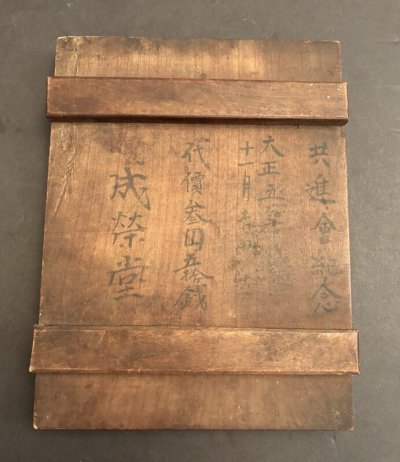 共進會紀念
大正五年
十一月
代價叁円五拾錢
成榮堂